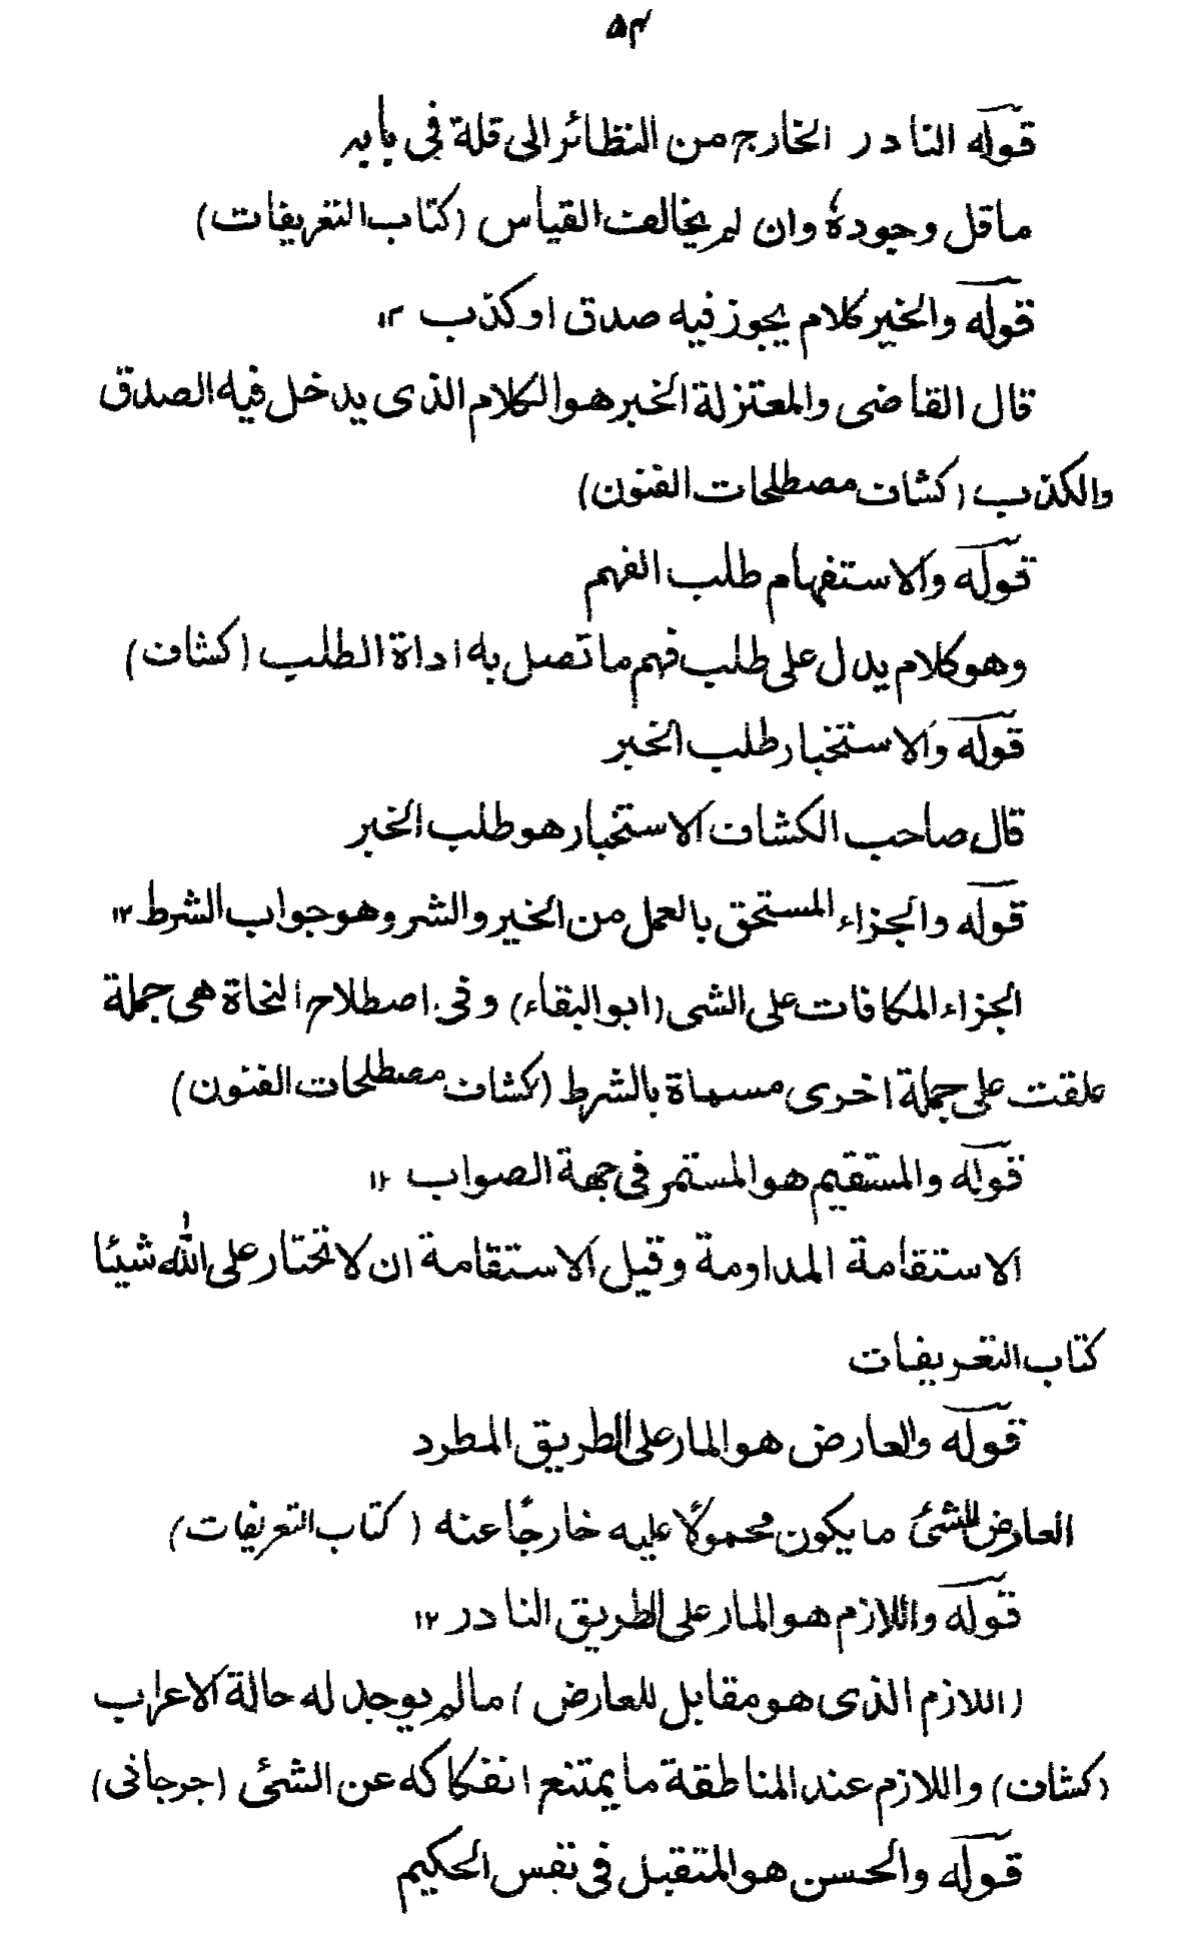 ۵۴
قوله النادر الخارج من النظائر الى قلة فى بابه
ماقل وجوده وان لم يخالف القياس (كتاب التعريفات)
قوله والخبر كلام يجوز فيه صدق او كذب ۱۲
قال القاضى والمعتزلة الخبر هو الكلام الذى يدخل فيه الصدق
والكذب (كشاف مصطلحات الفنون)
قوله والاستفهام طلب الفهم
وهو كلام يدل على طلب فهم ما تصل به اداة الطلب (كشاف)
قوله والاستخبار طلب الخبر
قال صاحب الكشاف الاستخبار هو طلب الخبر
قوله والجزاء المستحق بالعمل من الخير والشر وهو جواب الشرط ۱۲
الجزاء المكافات على الشى (ابو البقاء) وفى اصطلاح النحاة هى جملة
علقت على جملة اخرى مسماة بالشرط (كشاف مصطلحات الفنون)
قوله والمستقيم هو المستمر فى جهة الصواب ۱۲
الاستقامة المداومة وقيل الاستقامة ان لا تختار على الله شيئا
كتاب التعريفات
قوله والعارض هو المار على الطريق المطرد
العارض للشئ ما يكون محمولًا عليه خارجًا عنه (كتاب التعريفات)
قوله واللازم هو المار على الطريق النادر ۱۲
(اللازم الذى هو مقابل للعارض) مالم يوجد له حالة الاعراب
(كشاف) واللازم عند المناطقة ما يمتنع انفكاكه عن الشئ (جرجانى)
قوله والحسن هو المتقبل فى نفس الحكيم